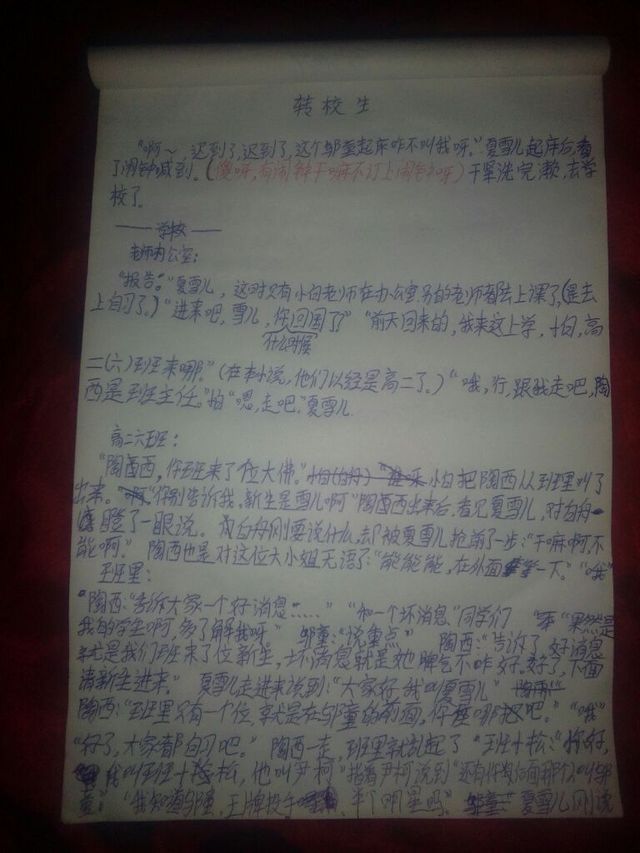 转校生
"啊～，迟到了，迟到了，这个邹童起床咋不叫我呀。"夏雪儿起床后，看
了闹钟喊到。(傻呀，有闹钟干嘛不订上闹钟呀)于是洗完漱，去学
校了。
——学校——
老师办公室：
"报告。"夏雪儿，这时只有小白老师在办公室，别的老师都去上课了，(是去
上自习了。)"进来吧，雪儿，你回国了""前天回来的，我来这上学，小白，高
什么时候
二(六)班在哪。"(在本小说，他们以经是高二了。)"哦，行，跟我走吧，陶
西是班主任。"白"嗯，走吧"夏雪儿
高二六班：
"陶西西，你班来了位大佛。"小白把陶西从班里叫了
出来。"你别告诉我，新生是雪儿啊"陶西西出来后，看见夏雪儿，对白舟
瞪了一眼说。白舟刚要说什么，却被夏雪儿抢前了一步："干嘛啊，不
能啊。"陶西也是对这位大小姐无语了："能能能，在外面等一下。""哦"
班里：
陶西："告诉大家一个好消息……""和一个坏消息"同学们"果然是
我的学生啊，多了解我呀。"邹童："说重点"陶西："告诉了，好消息
就是我们班来了位新生，坏消息就是她脾气不咋好，好了，下面
请新生进来。"夏雪儿走进来说到："大家好，我叫夏雪儿"
陶西："班里只有一个位，就是在邹童的前面，你坐哪吧。""哦"
"好了，大家都自习吧。"陶西一走，班里就乱起了"班小松："你好，
我叫班小松，他叫尹柯"指着尹柯说到"还有你后面那个叫邹
童""我知道邹童，王牌投手，半个明星吗"夏雪儿刚说